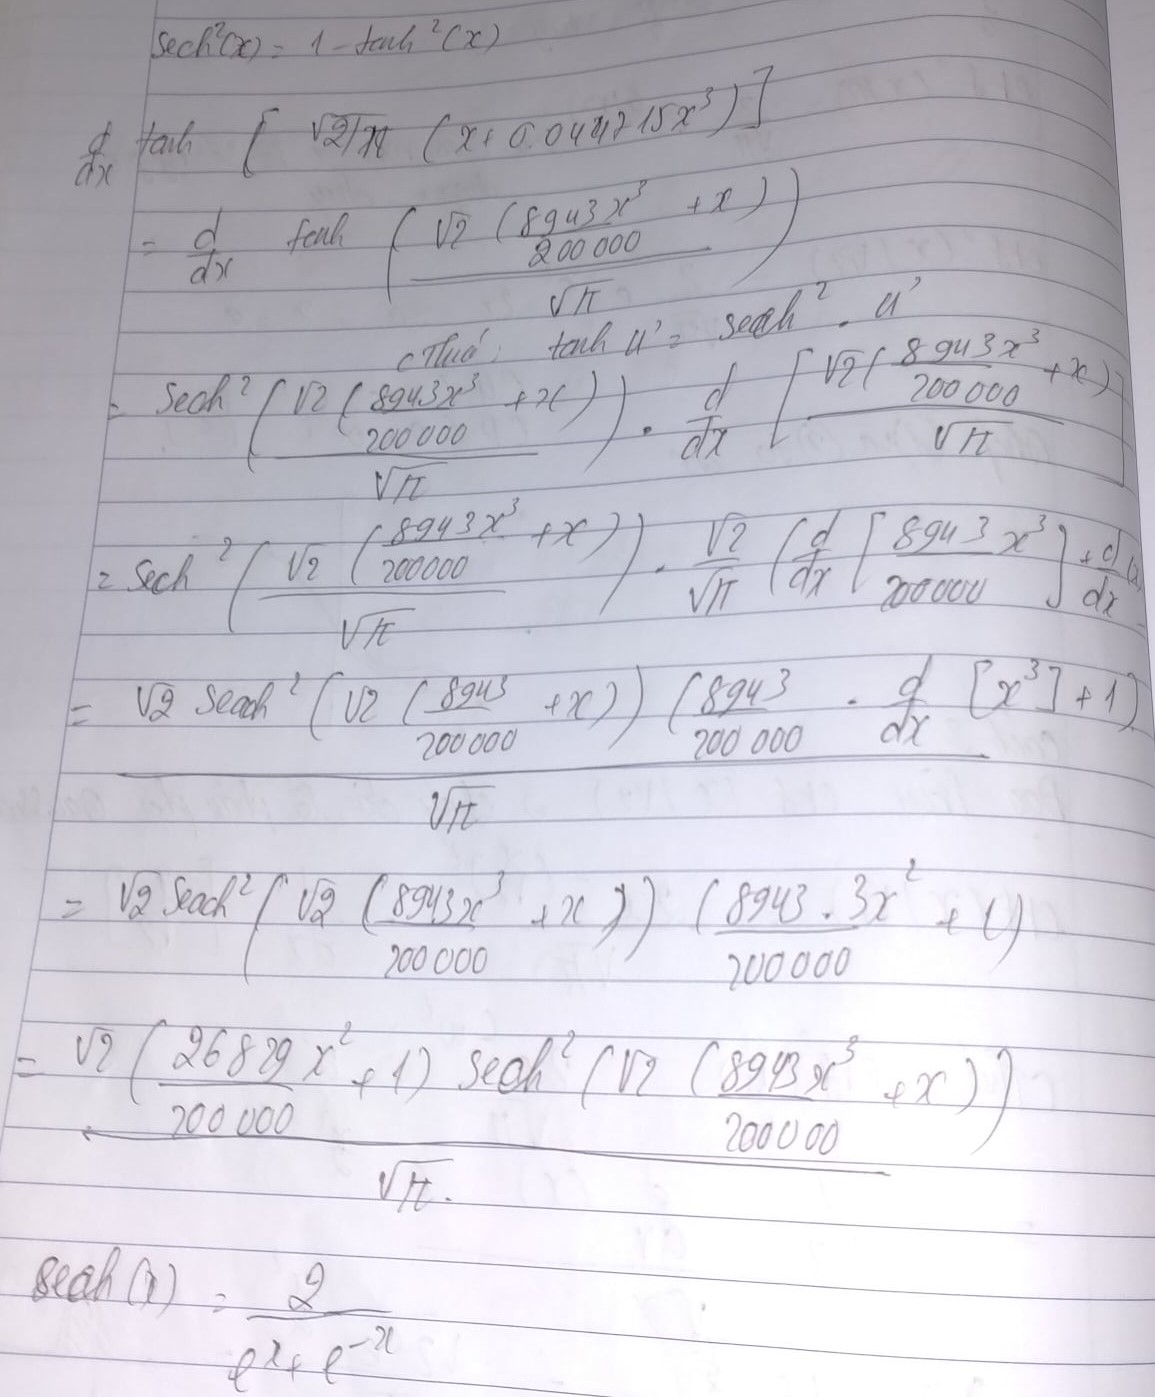 sech²(x) = 1 - tanh²(x)
d/dx tanh [ √2/π (x + 0.044715x³) ]
= d/dx tanh ( √2 (8943x³/200000 + x) / √π )
tanh u' = seah² . u'
= Sech² ( √2 (8943x³/200000 + x) / √π ) . d/dx [ √2 (8943x³/200000 + x) / √π ]
= Sech² ( √2 (8943x³/200000 + x) / √π ) . √2/√π ( d/dx [ 8943x³/200000 ] + d/dx
= √2 Seach² ( √2 (8943/200000 + x) ) ( 8943/200000 . d/dx [x³] + 1 ) / √π
= √2 Seach² ( √2 (8943x³/200000 + x) ) ( 8943.3x²/200000 + 1 )
= √2 ( 26829x²/200000 + 1 ) Seah² ( √2 (8943x³/200000 + x) ) / √π.
seah(x) = 2 / eˣ + e⁻ˣ